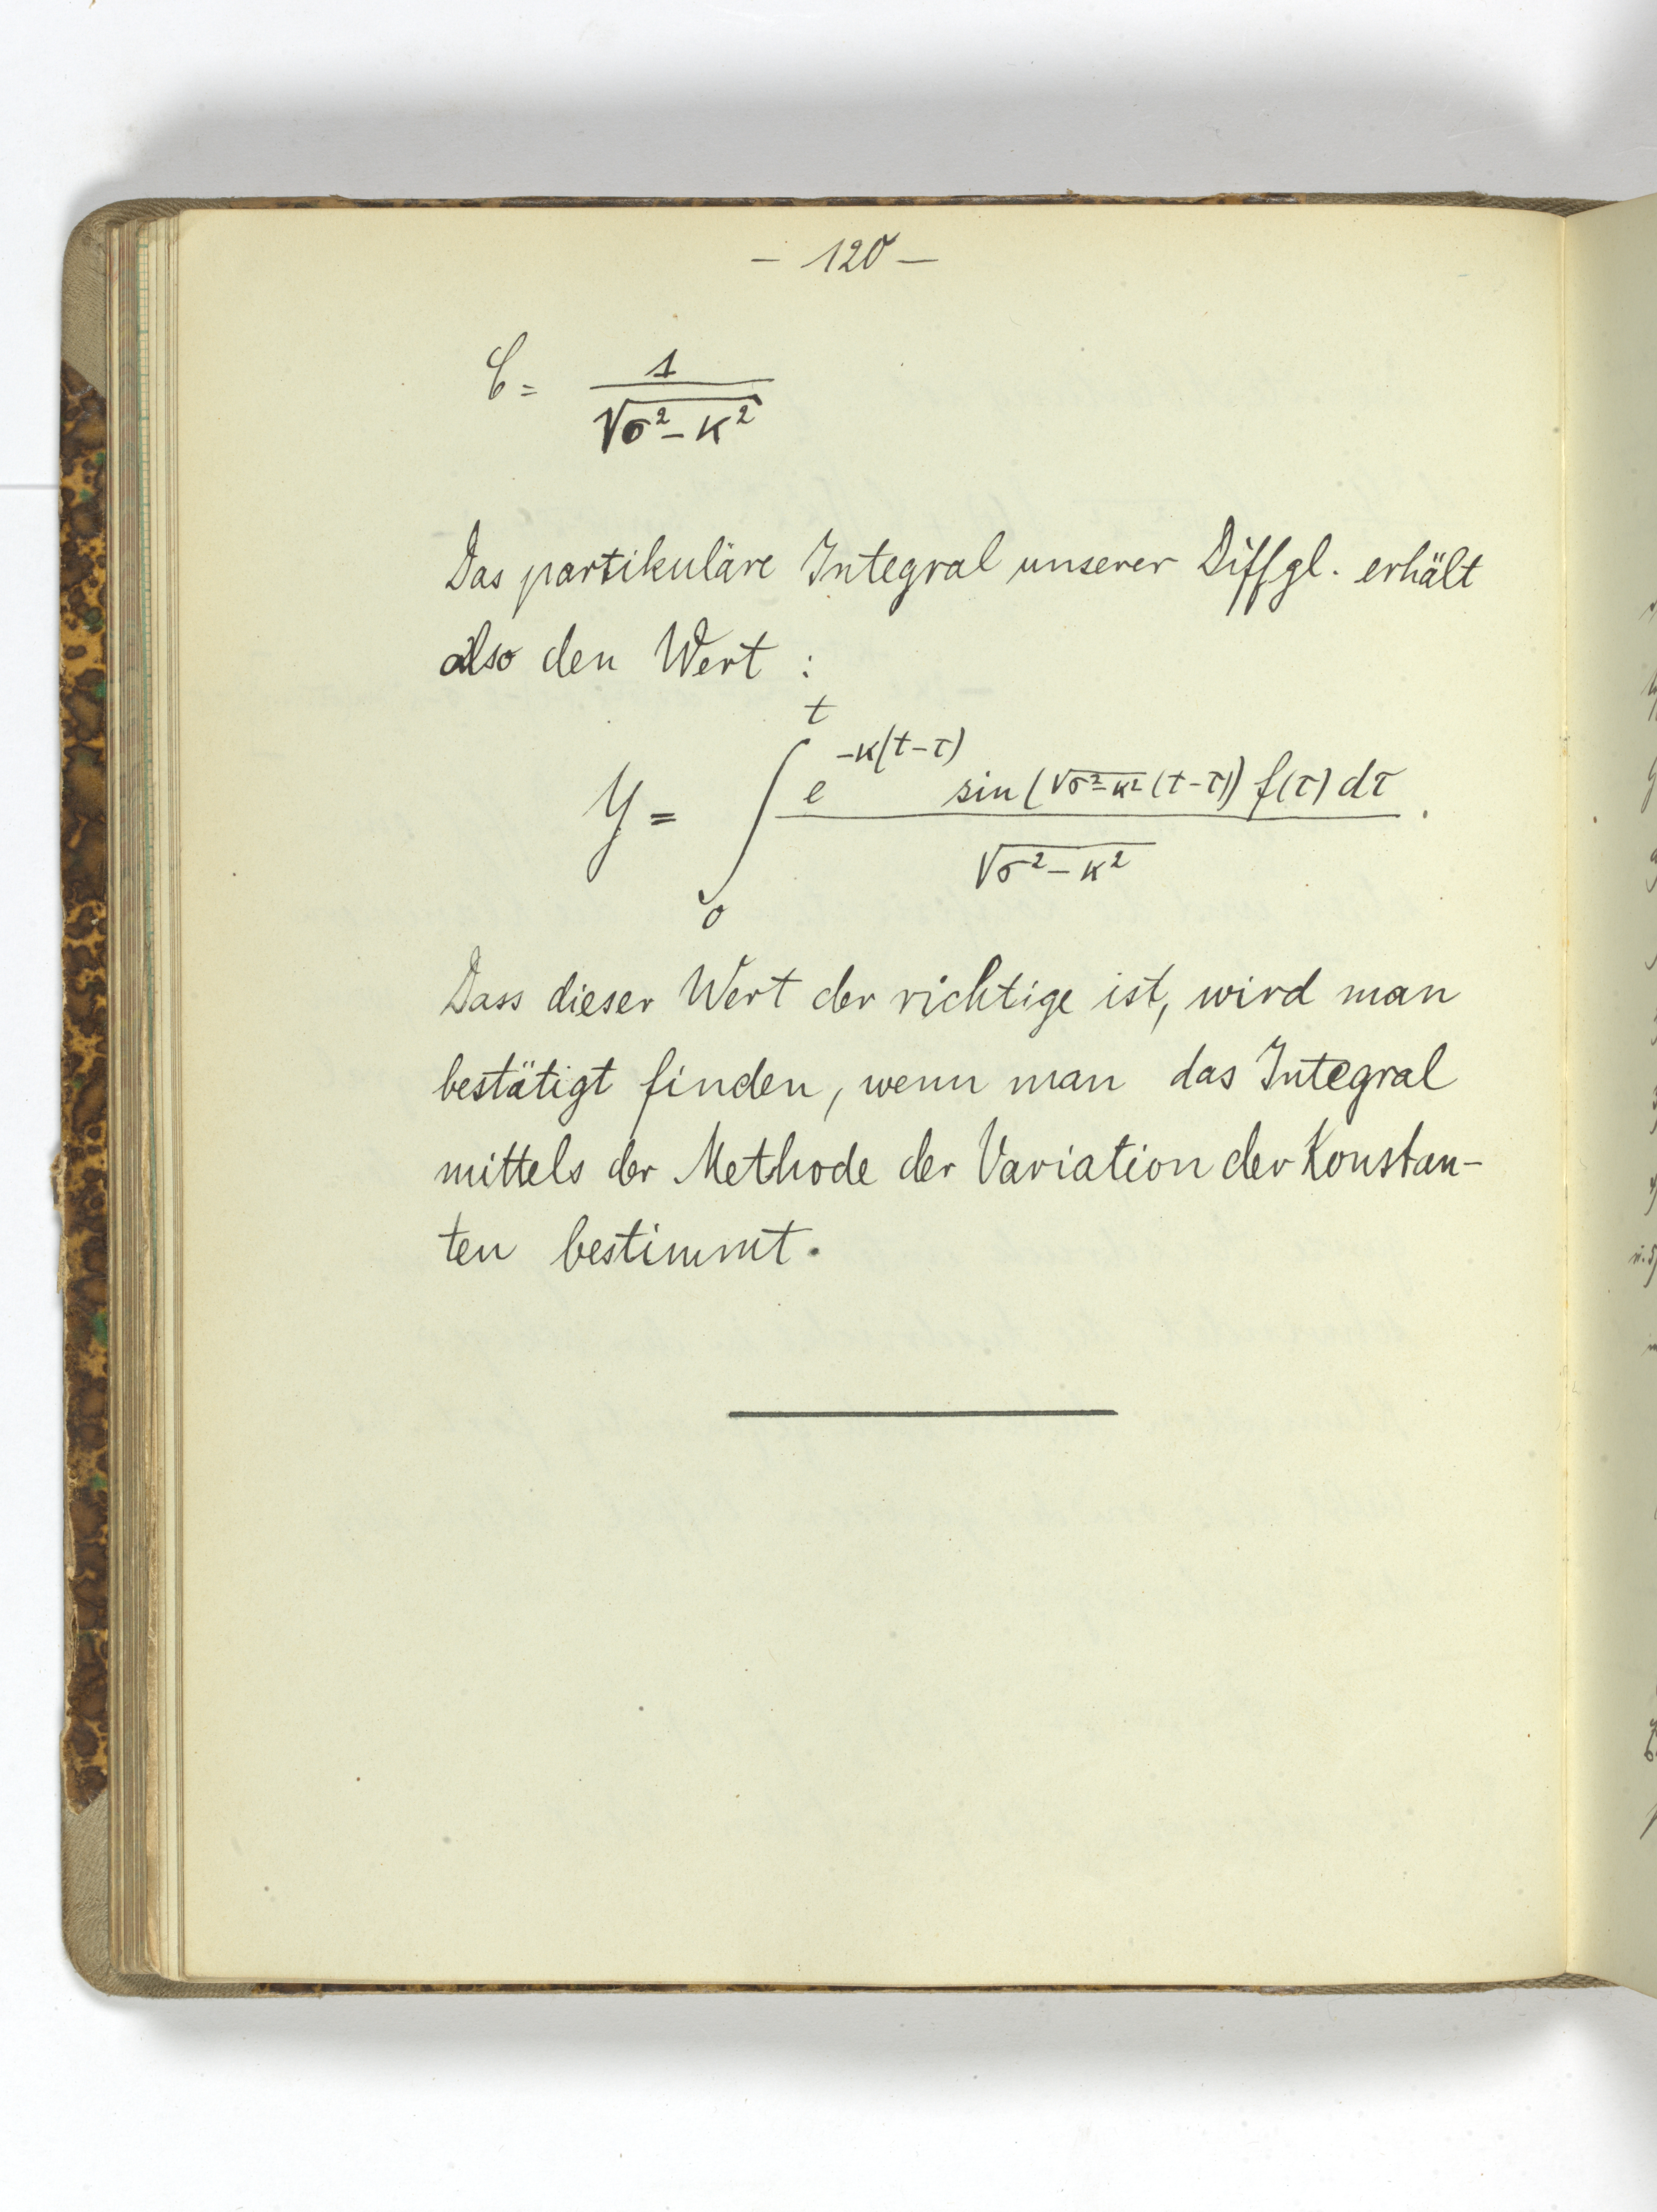 – 120 –
C = 1 / √σ² – κ²
Das partikuläre Integral unserer Diffgl. erhält
also den Wert :
y = ∫₀ᵗ e^–κ(t–τ) sin(√σ²–κ² (t–τ)) f(τ) dτ / √σ² – κ² .
Dass dieser Wert der richtige ist, wird man
bestätigt finden, wenn man das Integral
mittels der Methode der Variation der Konstan-
ten bestimmt.